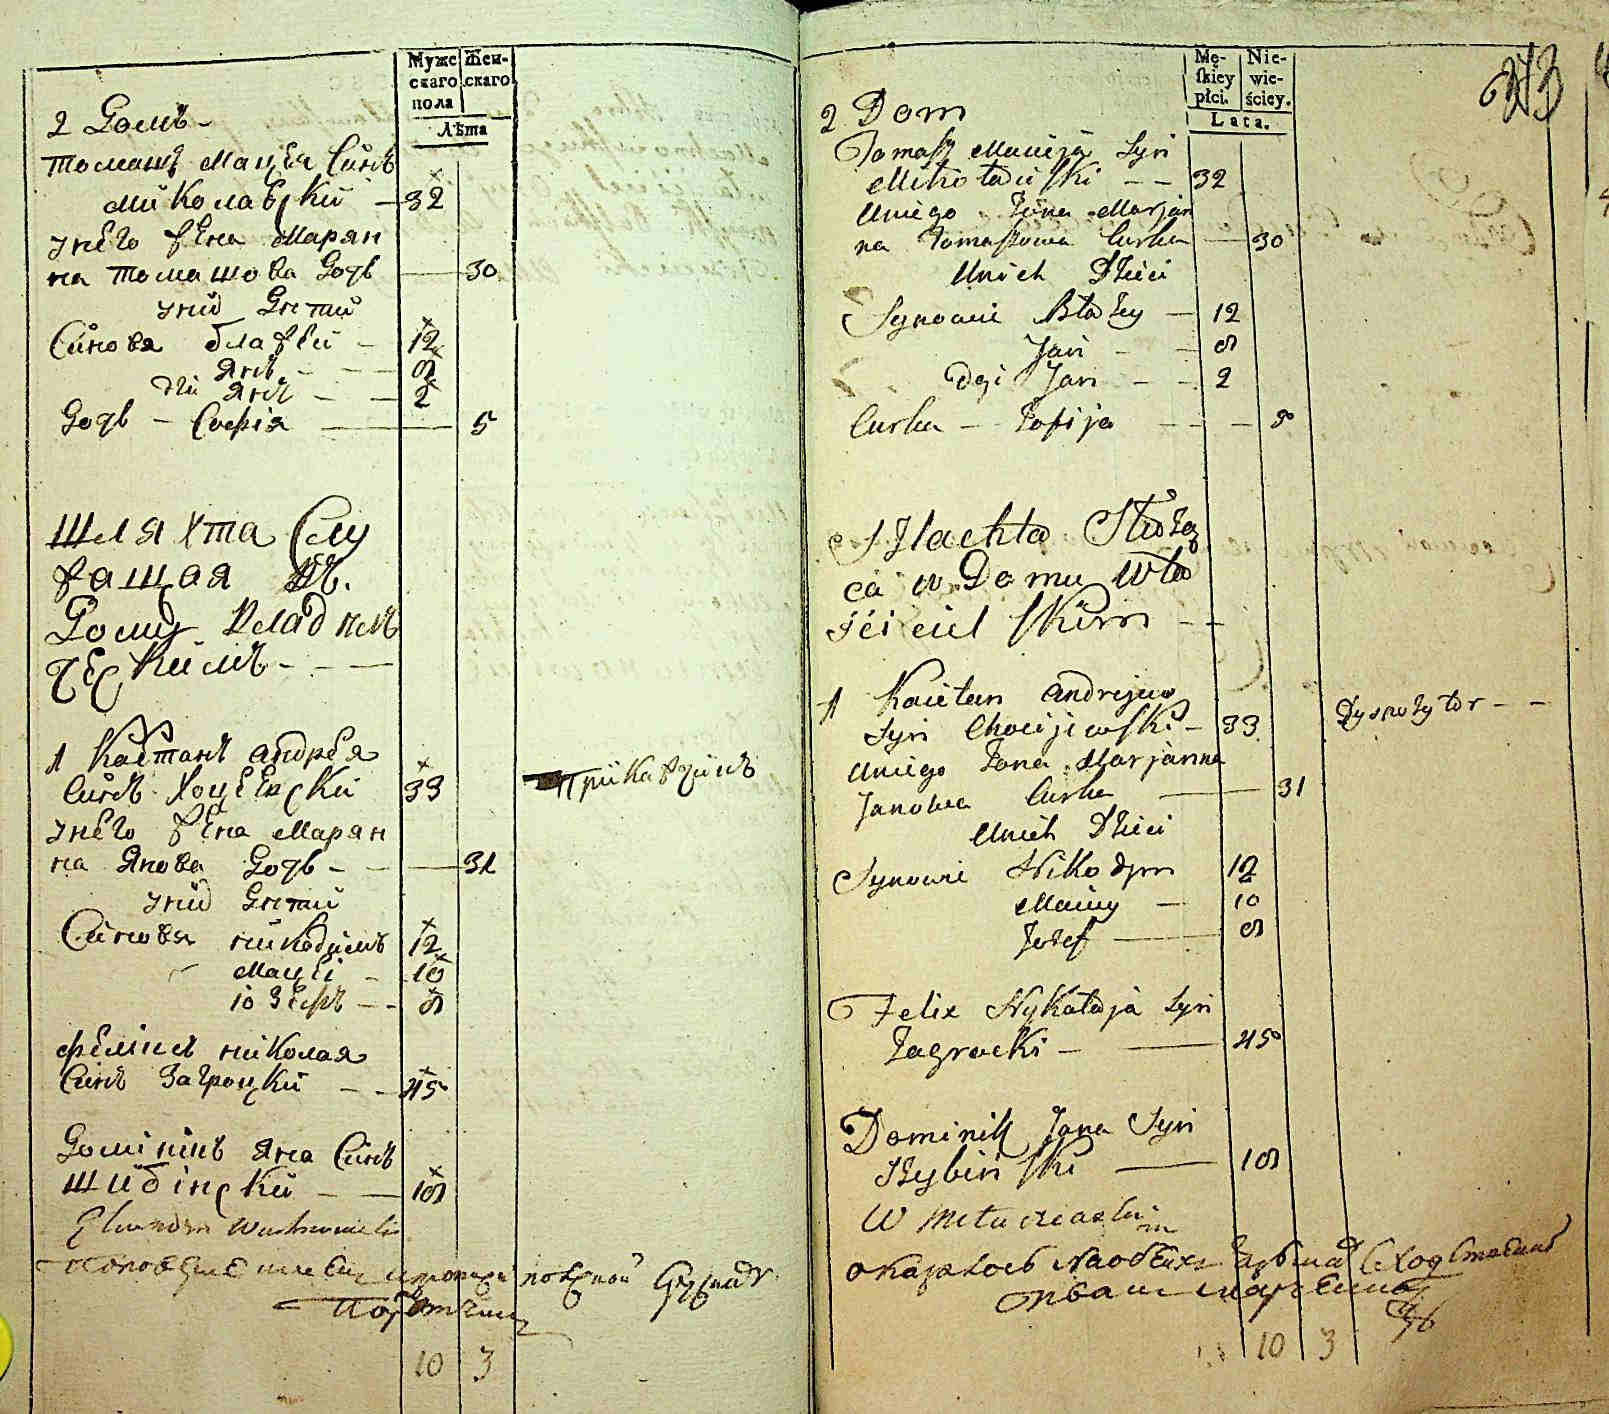 Муже
скаго
пола
Жен-
скаго
Лѣта
2 Домъ
Томашъ Мацѣя Синъ
Миколаевский — 32
у него Жена Марян
на Томашова Дочь — 30
у нид Дѣтий
Синовя Блажей — 12
Янъ — 8
Янъ — 2
Дочь — Софія — 5
Шляхта Слу
жащая въ
Дому Влад
ческимъ
1 Каетанъ Андрея
Синъ Хоцеевский 33
Приказчикъ
у него Жена Марян
на Янова Дочь — 31
у нид Дѣтий
Синовя Никодимъ 12
Мацеі — 10
Іозефъ — 8
Феліцъ Николая
Синъ Загроцкий — 45
Домінікъ Яна Синъ
Шибінский — 18
10 3
Mę-
skiey
płci.
Nie-
wie-
ściey.
Lata.
2 Dom
Tomasz Macieja Syn
Mikołaiewski — 32
U niego Żona Marjan
na Tomaszowa Curka — 30
U nich Dzieci
Synowie Błażey — 12
Jan — 8
Jan — 2
Curka — Zofija — 5
Szlachta Służą
ca w Domu Wła
ściciel skim
1 Kaietan Andrzeja
Syn Chociejewski — 33
Dyspozytor
U niego Żona Marjanna
Janowa Curka — 31
U nich Dzieci
Synowie Nikodym 12
Maciey — 10
Jozef — 8
Felix Mykołaja Syn
Zagrocki — 45
Dominik Jana Syn
Szybiński — 18
10 3